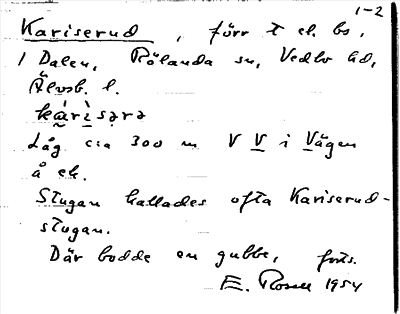 1-2
Kariserud, förr t eh. bs,
/ Dalen, Rölanda sn, Vedbo hd,
Älvsb. l.
kárìsərə
Låg cca 300 m V V i Vägen
å ek.
Stugan kallades ofta Kariserud-
stugan.
Där bodde en gubbe, forts.
E. Rosell 1954